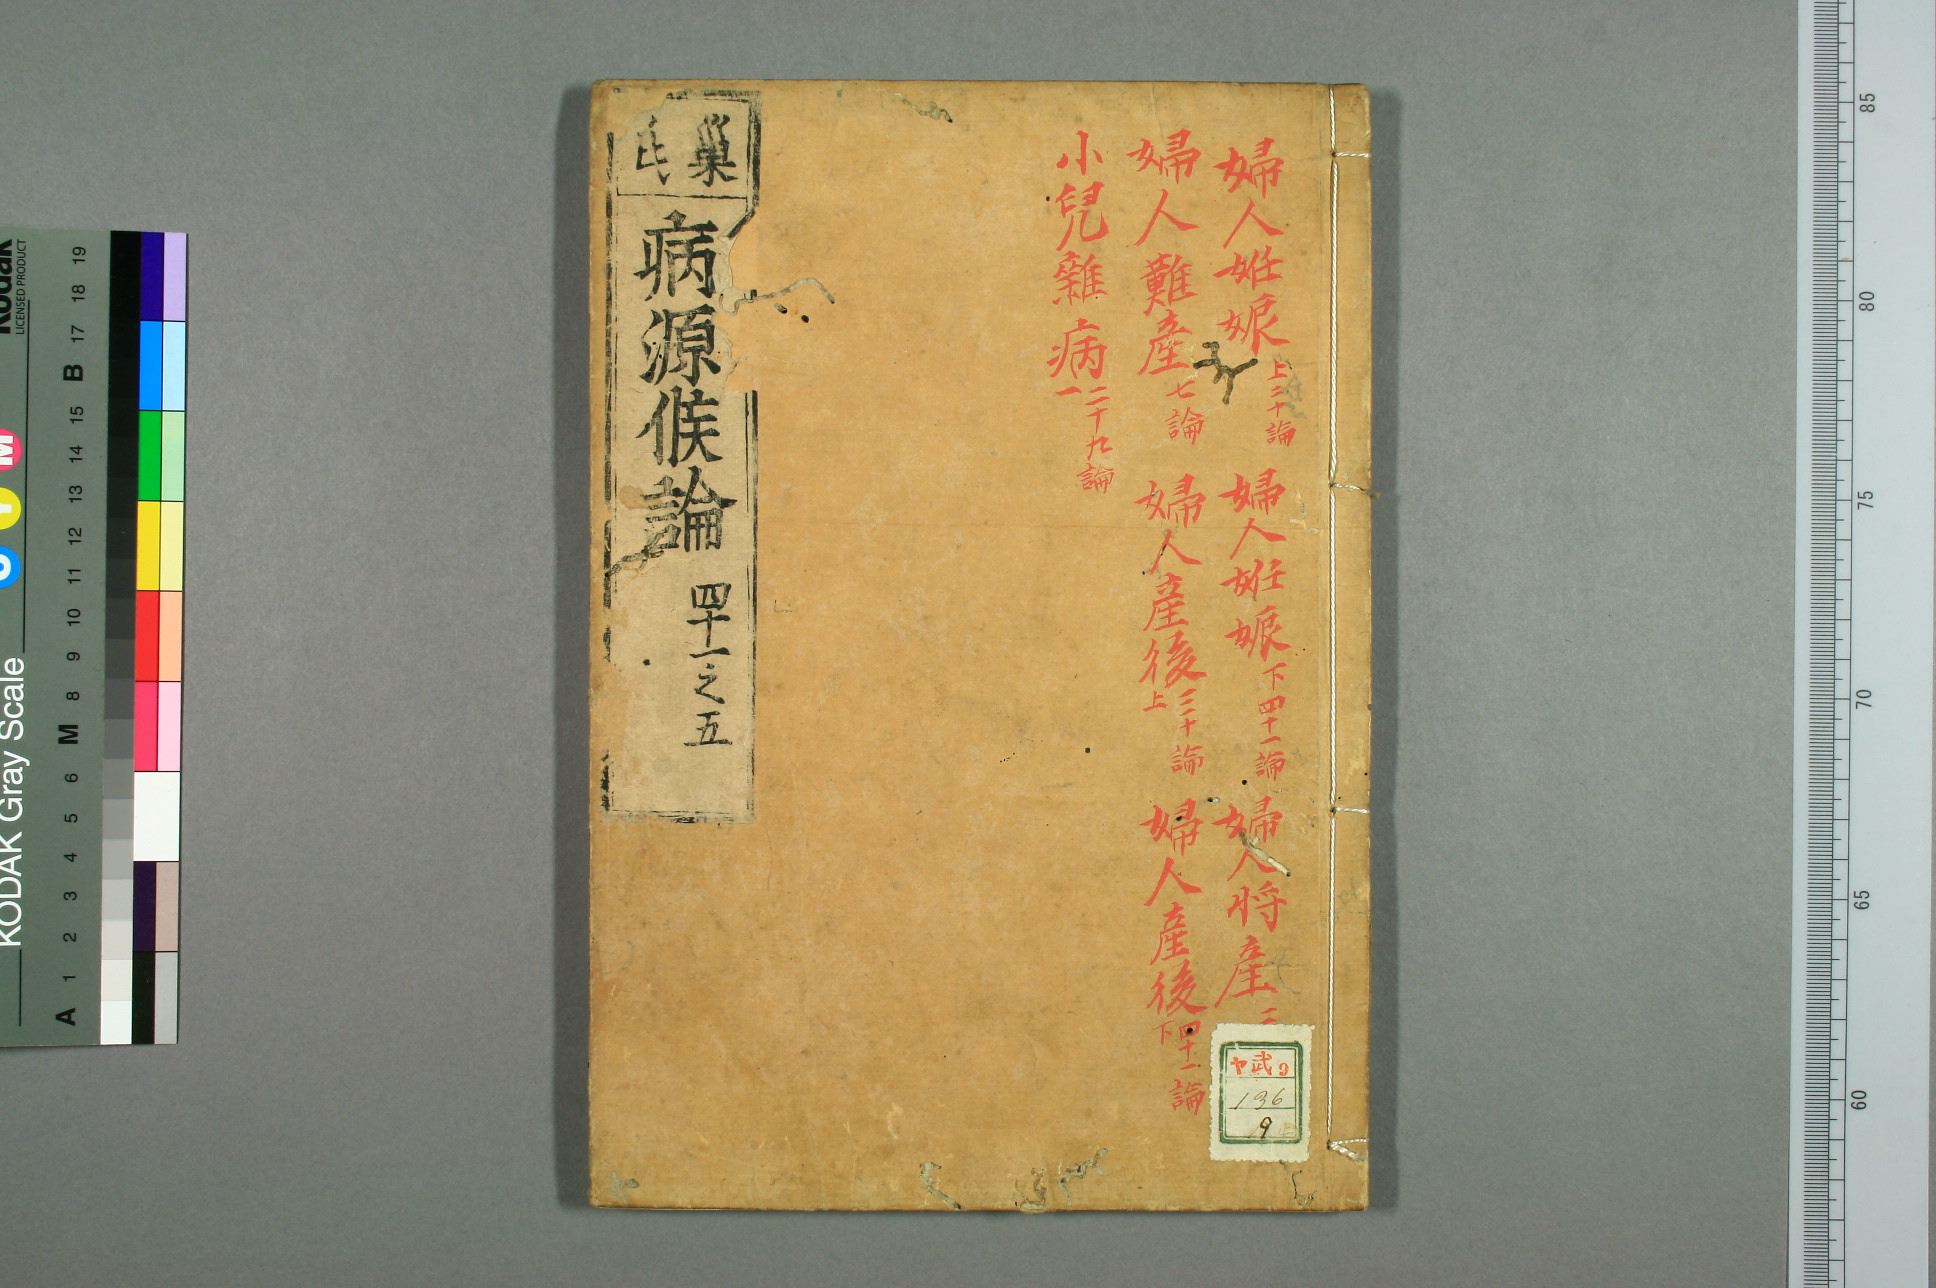 婦人姙娠上二十論 婦人姙娠下四十一論 婦人将產
婦人難産七論 婦人産後上三十論 婦人産後下四十一論
小兒雜病一二十九論
巢氏
病源候論 四十一之五
武
136
9
KODAK Gray Scale
Kodak
LICENSED PRODUCT
C Y M
A 1 2 3 4 5 6 M 8 9 10 11 12 13 14 15 B 17 18 19
85
80
75
70
65
60